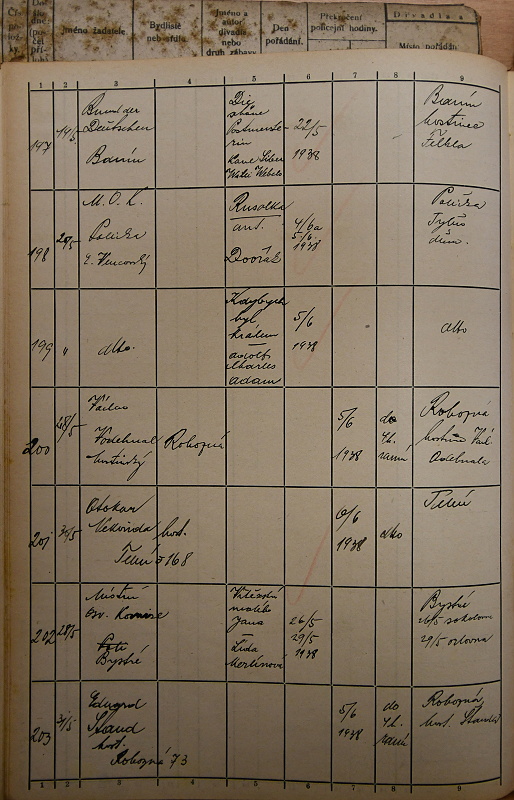 Jméno žadatele
Bydliště
neb sídlo
Jméno a
autor
divadla
nebo
druh zábavy
Den
pořádání.
Překročení
policejní hodiny.
Divadla a
Místo pořádání
1 2 3 4 5 6 7 8 9
197
Bund der
Deutschen
Banín
Die
Postmeisterin
22/5
1938
Banín
hostinec
198
M. O. K.
Polička
Rusalka
ant.
Dvořák
4/6 a
5/6
1938
Polička
Tylův
dům.
199
"
dtto.
Kdybych
byl
králem
adolf
charles
adam
5/6
1938
dtto
200
28/5
Václav
Vodehnal
hostinský
Robozná
5/6
1938
do
4 h.
ranní
Robozná
hostinec Václ.
Vodehnala
201
Otokar
Nekvinda
host.
Telecí č 168
6/6
1938
dtto
Telecí
202
28/5
Místní
osv. Komise
Bystré
Vítězství
malého
Jana
Lída
Merlínová
26/5
29/5
1938
Bystré
26/5 sokolovna
29/5 orlovna
203
31/5
Eduard
Štand
host.
Robozná 73
5/6
1938
do
4 h.
ranní
Robozná
host. Štandl
1 2 3 4 5 6 7 8 9